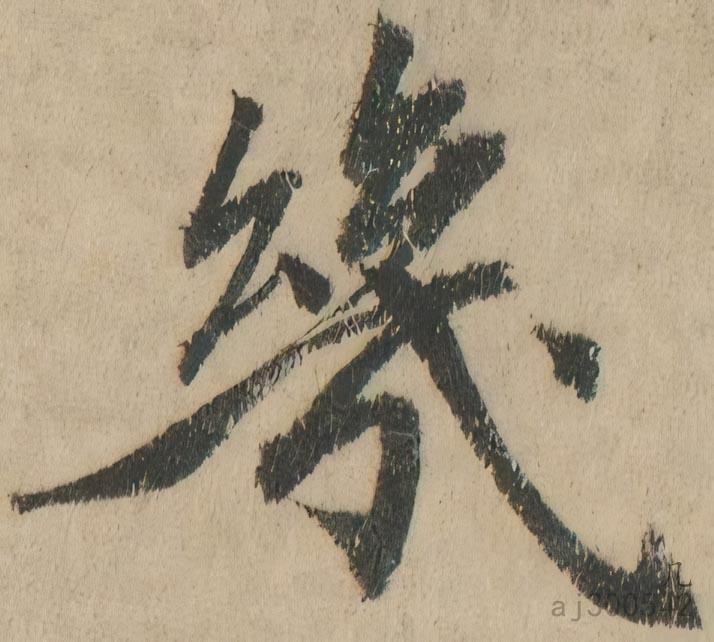 幾
九
aj300542